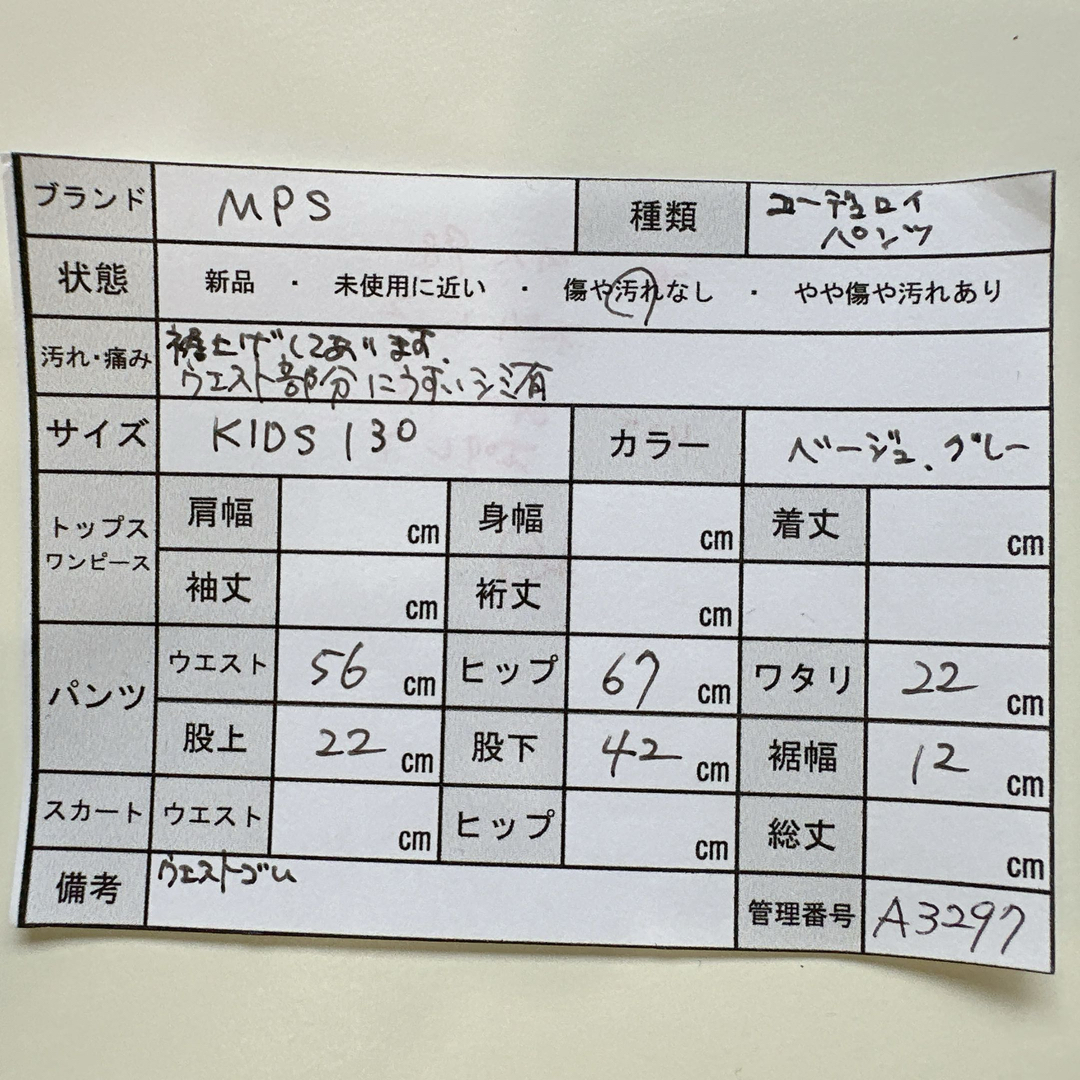 ブランド MPS 種類 コーデュロイ
パンツ
状態 新品 ・ 未使用に近い ・ 傷や汚れなし ・ やや傷や汚れあり
汚れ・痛み 裾上げしてあります.
ウエスト部分にうすいシミ有
サイズ KIDS 130 カラー ベージュ、グレー
トップス
ワンピース
肩幅 cm 身幅 cm 着丈 cm
袖丈 cm 裄丈 cm
パンツ
ウエスト 56 cm ヒップ 67 cm ワタリ 22 cm
股上 22 cm 股下 42 cm 裾幅 12 cm
スカート ウエスト cm ヒップ cm 総丈 cm
備考 ウエストゴム
管理番号 A3297